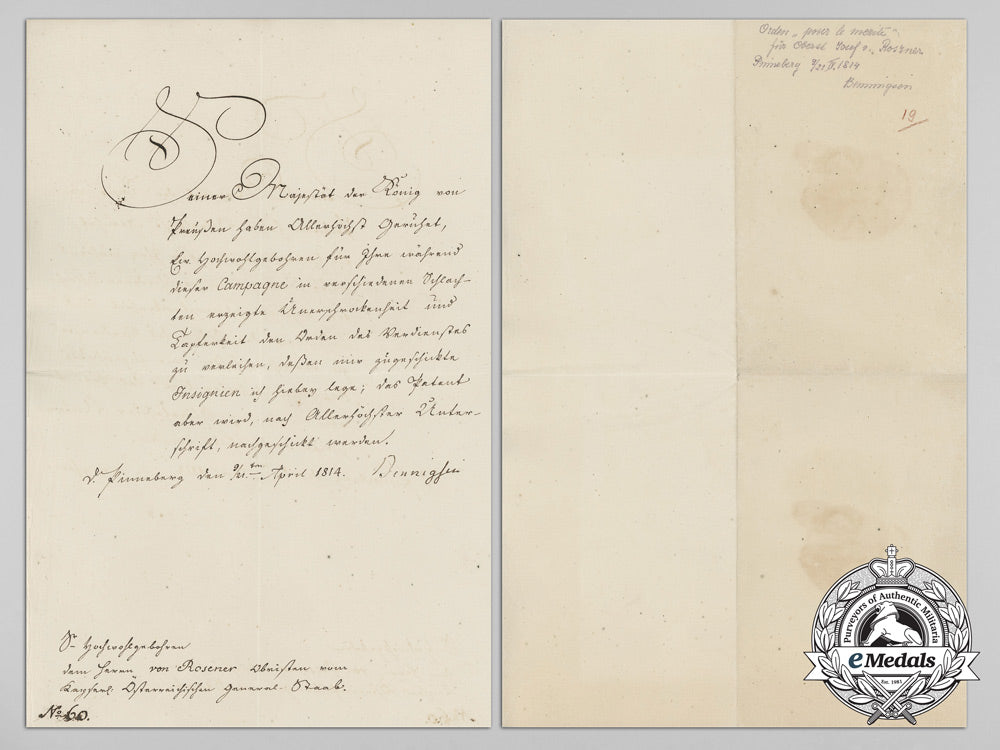 Seiner Majestät der König von
Preußen haben Allerhöchst Geruhet,
Ew. Hochwohlgebohren für Ihre während
dieser Campagne in verschiedenen Schlach-
ten erzeigte Unerschrockenheit und
Tapferkeit den Orden des Verdienstes
zu verleihen, deßen mir zugeschickte
Insignien ich hiebey lege; das Patent
aber wird, nach Allerhöchster Unter-
schrift, nachgeschickt werden.
Pinneberg den 9/21ten April 1814. Bennigsen
Sr Hochwohlgebohren
dem Herrn von Rosener Obristen vom
Kayserl. Österreichischen General-Staab.
No 60.
Orden „pour le merite"
für Oberst Josef v. Roszner
Pinneberg 9/21. IV. 1814
Bennigsen
19
Purveyors of Authentic Militaria
eMedals
Est. 1981